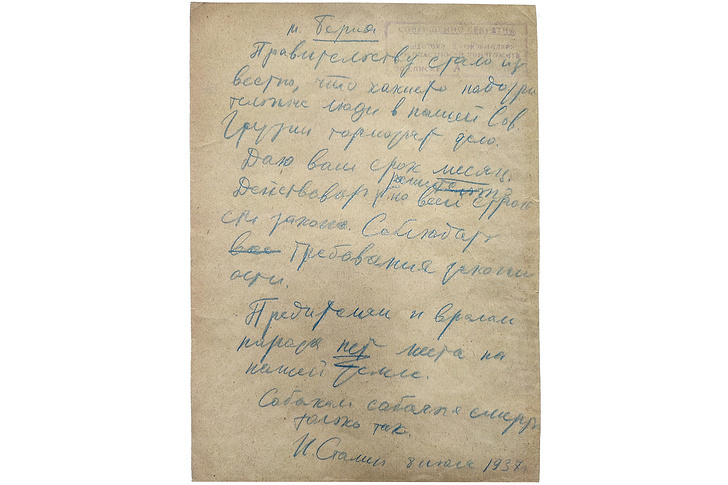 т. Берия
СОВЕРШЕННО СЕКРЕТНО
Правительству стало из
вестно, что какието подозри
тельные люди в нашей Сов.
Грузии тормозят дело.
Даю вам срок месяц.
Действовать по всей строго
сти закона. Соблюдать
все требования законн
ости.
Предителям и врагам
народа нет места на
нашей земле.
Собакам собачья смерть
только так.
И. Сталин 8 июля 1937